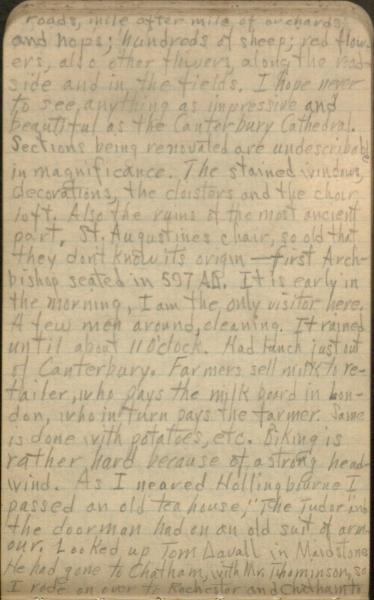 roads, mile after mile of orchards
and hops; hundreds of sheep; red flow-
ers, also other flowers, along the road-
side and in the fields. I hope never
to see anything as impressive and
beautiful as the Canterbury Cathedral.
Sections being renovated are undescribable
in magnificance. The stained windows,
decorations, the cloistors and the choir
loft. Also the ruins of the most ancient
part, St. Augustines chair, so old that
they dont know its origin — first Arch-
bishop seated in 597 AD. It is early in
the morning, I am the only visitor here.
A few men around, cleaning. It rained
until about 11 O'clock. Had lunch just out
of Canterbury. Farmers sell milk to re-
tailer, who pays the milk board in Lon-
don, who in turn pays the farmer. Same
is done with potatoes, etc. Biking is
rather hard because of a strong head-
wind. As I neared Hollingbourne I
passed an old tea house, "The Tudor" and
the doorman had on an old suit of arm-
our. Looked up Tom Davall in Maidstone
He had gone to Chatham, with Mr. Thominson, so
I rode on over to Rochester and Chatham to